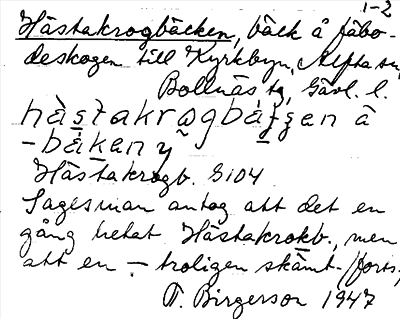 1-2
Hästakrogbäcken, bäck å fäbo-
deskogen till Kyrkbyn, Alfta sn,
Bollnäs tg, Gävl. l.
hàstakrogbä́ǯen å
-bäken y
Hästakrogb. G104
Sagesman antog att det en
gång hetat Hästakrokb., men
att en – troligen skämt- /forts.,
T. Birgerson 1947